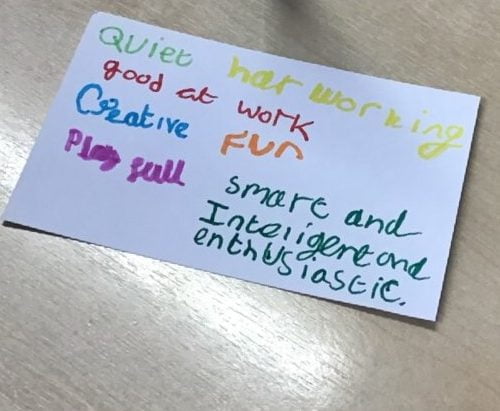 Quiet har working
good at work
Creative Fun
Play full
smart and
Inteligent and
enthusiastic.